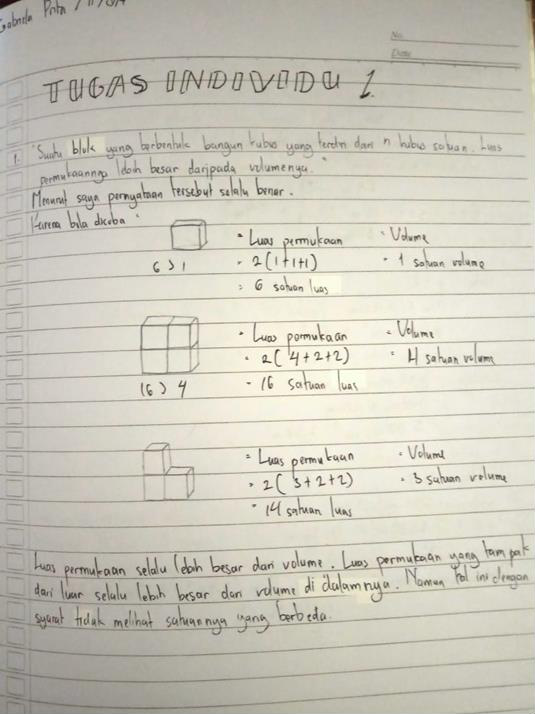 Gabriela Prita
No.
Date
TUGAS INDIVIDU 1.
1. "Suatu blok yang berbentuk bangun kubus yang terdiri dari n kubus satuan. Luas
permukaannya lebih besar daripada volumenya."
Menurut saya pernyataan tersebut selalu benar.
Karena bila dicoba :
6 > 1
• Luas permukaan
= 2(1+1+1)
= 6 satuan luas
• Volume
= 1 satuan volume
16 > 4
• Luas permukaan
= 2(4+2+2)
= 16 satuan luas
• Volume
= 4 satuan volume
• Luas permukaan
= 2(3+2+2)
= 14 satuan luas
• Volume
= 3 satuan volume
Luas permukaan selalu lebih besar dari volume. Luas permukaan yang tampak
dari luar selalu lebih besar dari volume di dalamnya. Namun hal ini dengan
syarat tidak melihat satuannya yang berbeda.